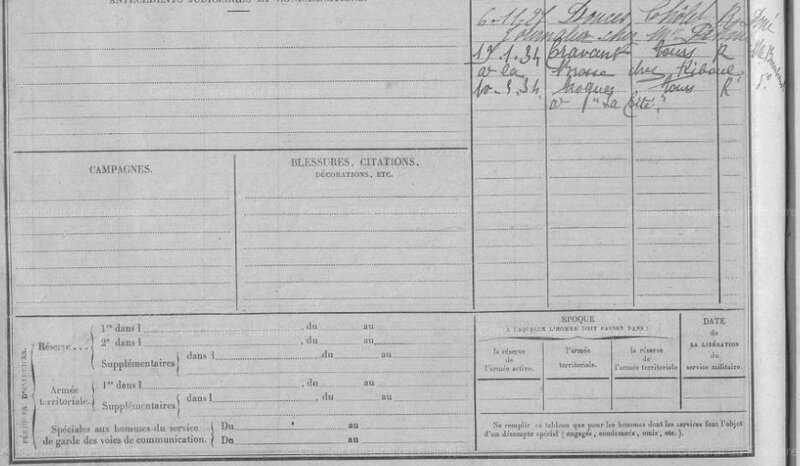 ANTÉCÉDENTS JUDICIAIRES ET CONDAMNATIONS.
6-11-27 Doués Chôlet R
Journalier chez Mr
19.1.34 Cravant Tours R
à la Brosse chez Riboul
10-3.34 Troques Tours R
à "La Cité"
CAMPAGNES.
BLESSURES, CITATIONS,
DÉCORATIONS, ETC.
PÉRIODES D'EXERCICES.
Réserve...
1re dans l , du au
2e dans l , du au
Supplémentaires dans l , du au
Armée territoriale.
1re dans l , du au
Supplémentaires dans l , du au
Spéciales aux hommes du service
de garde des voies de communication.
Du au
Du au
ÉPOQUE
À LAQUELLE L'HOMME DOIT PASSER DANS :
la réserve
de
l'armée active.
l'armée
territoriale.
la réserve
de
l'armée territoriale
DATE
de
LA LIBÉRATION
du
service militaire.
Ne remplir ce tableau que pour les hommes dont les services font l'objet
d'un décompte spécial (engagés, condamnés, omis, etc.)